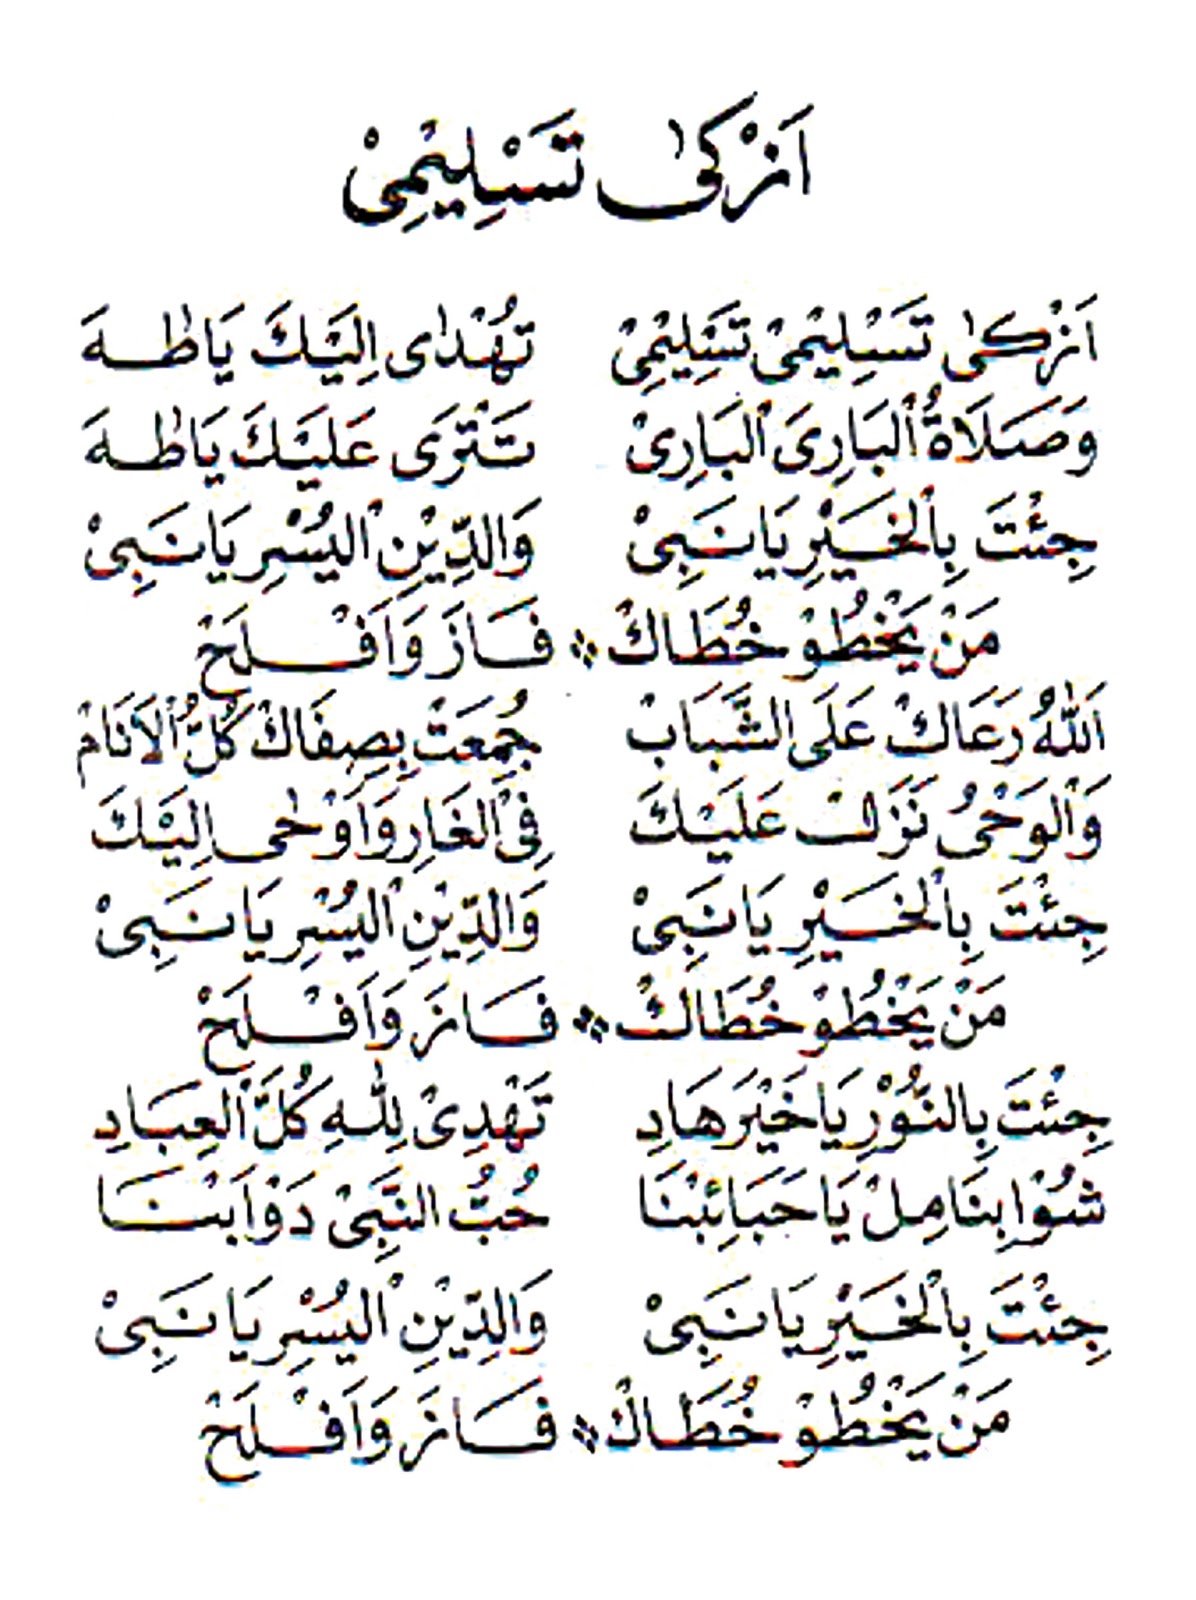 اَزْكٰى تَسْلِيْمِيْ
اَزْكٰى تَسْلِيْمِيْ تَسْلِيْمِيْ تُهْدٰى اِلَيْكَ يَاطٰهَ
وَصَلَاةُ الْبَارِىَ الْبَارِىْ تَتْرَى عَلَيْكَ يَاطٰهَ
جِئْتَ بِالْخَيْرِ يَانَبِىْ وَالدِّيْنِ الْيُسْرِ يَانَبِىْ
مَنْ يَخْطُوْ خُطَاكْ ❖ فَازَ وَاَفْلَحْ
اَللّٰهُ رَعَاكْ عَلَى الشَّبَابْ جُمِعَتْ بِصِفَاكْ كُلُّ الْاَنَامْ
وَالْوَحْيُ نَزَلْ عَلَيْكَ فِى الْغَارِ وَاَوْحٰى اِلَيْكَ
جِئْتَ بِالْخَيْرِ يَانَبِىْ وَالدِّيْنِ الْيُسْرِ يَانَبِىْ
مَنْ يَخْطُوْ خُطَاكْ ❖ فَازَ وَاَفْلَحْ
جِئْتَ بِالنُّوْرِ يَاخَيْرَ هَادِ تَهْدِىْ لِلّٰهِ كُلَّ الْعِبَادِ
شُوْا بِنَامِلْ يَاحَبَائِبْنَا حُبُّ النَّبِىْ دَوْا بَنَا
جِئْتَ بِالْخَيْرِ يَانَبِىْ وَالدِّيْنِ الْيُسْرِ يَانَبِىْ
مَنْ يَخْطُوْ خُطَاكْ ❖ فَازَ وَاَفْلَحْ